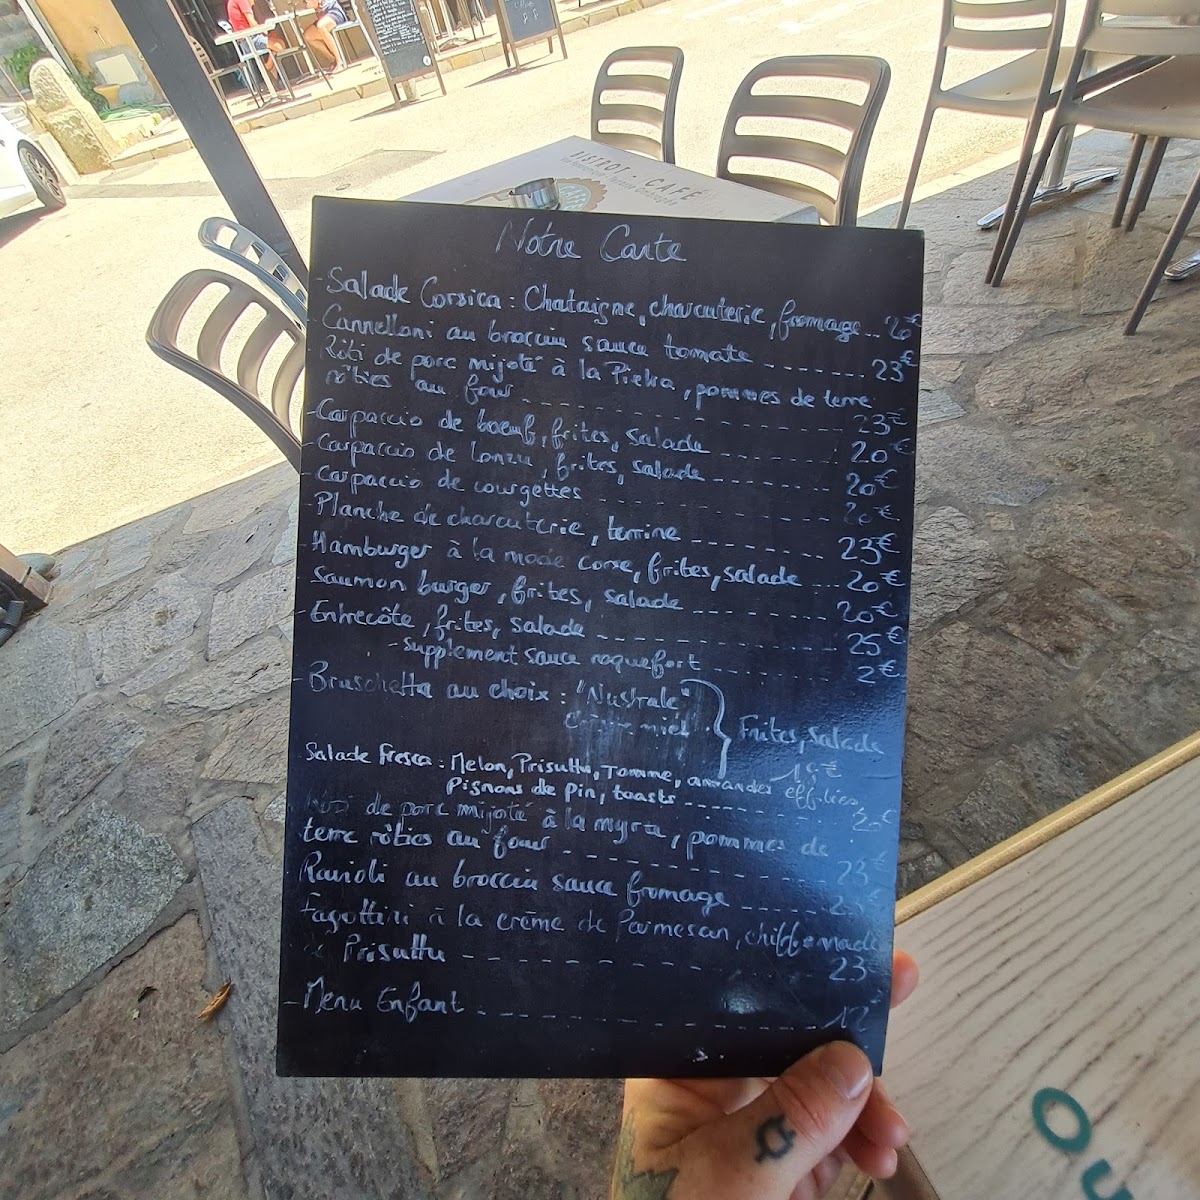 BISTROT - CAFÉ
Notre Carte
- Salade Corsica : Chataigne, charcuterie, fromage .. 20€
Cannelloni au brocciu sauce tomate ------- 23€
Rôti de porc mijoté à la Pietra, pommes de terre
rôties au four -------------- 23€
- Carpaccio de boeuf, frites, salade ------- 20€
- Carpaccio de Lonzu, frites, salade ------- 20€
- Carpaccio de courgettes ------------ 20€
Planche de charcuterie, terrine -------- 23€
- Hamburger à la mode corse, frites, salade --- 20€
- Saumon burger, frites, salade -------- 20€
- Entrecôte, frites, salade ------------ 25€
- supplément sauce roquefort ------ 2€
- Bruschetta au choix : "Nustrale"
miel
} Frites, salade
19€
Salade Fresca : Melon, Prisuttu, Tomme, amandes effilées
Pignons de pin, toasts ------ 20€
Rôti de porc mijoté à la myrte, pommes de
terre rôties au four ------------ 23€
Ravioli au brocciu sauce fromage ------ 23€
Fagottini à la crème de Parmesan, chiffonnade
de Prisuttu ---------------- 23€
- Menu Enfant ---------------- 12
Ou